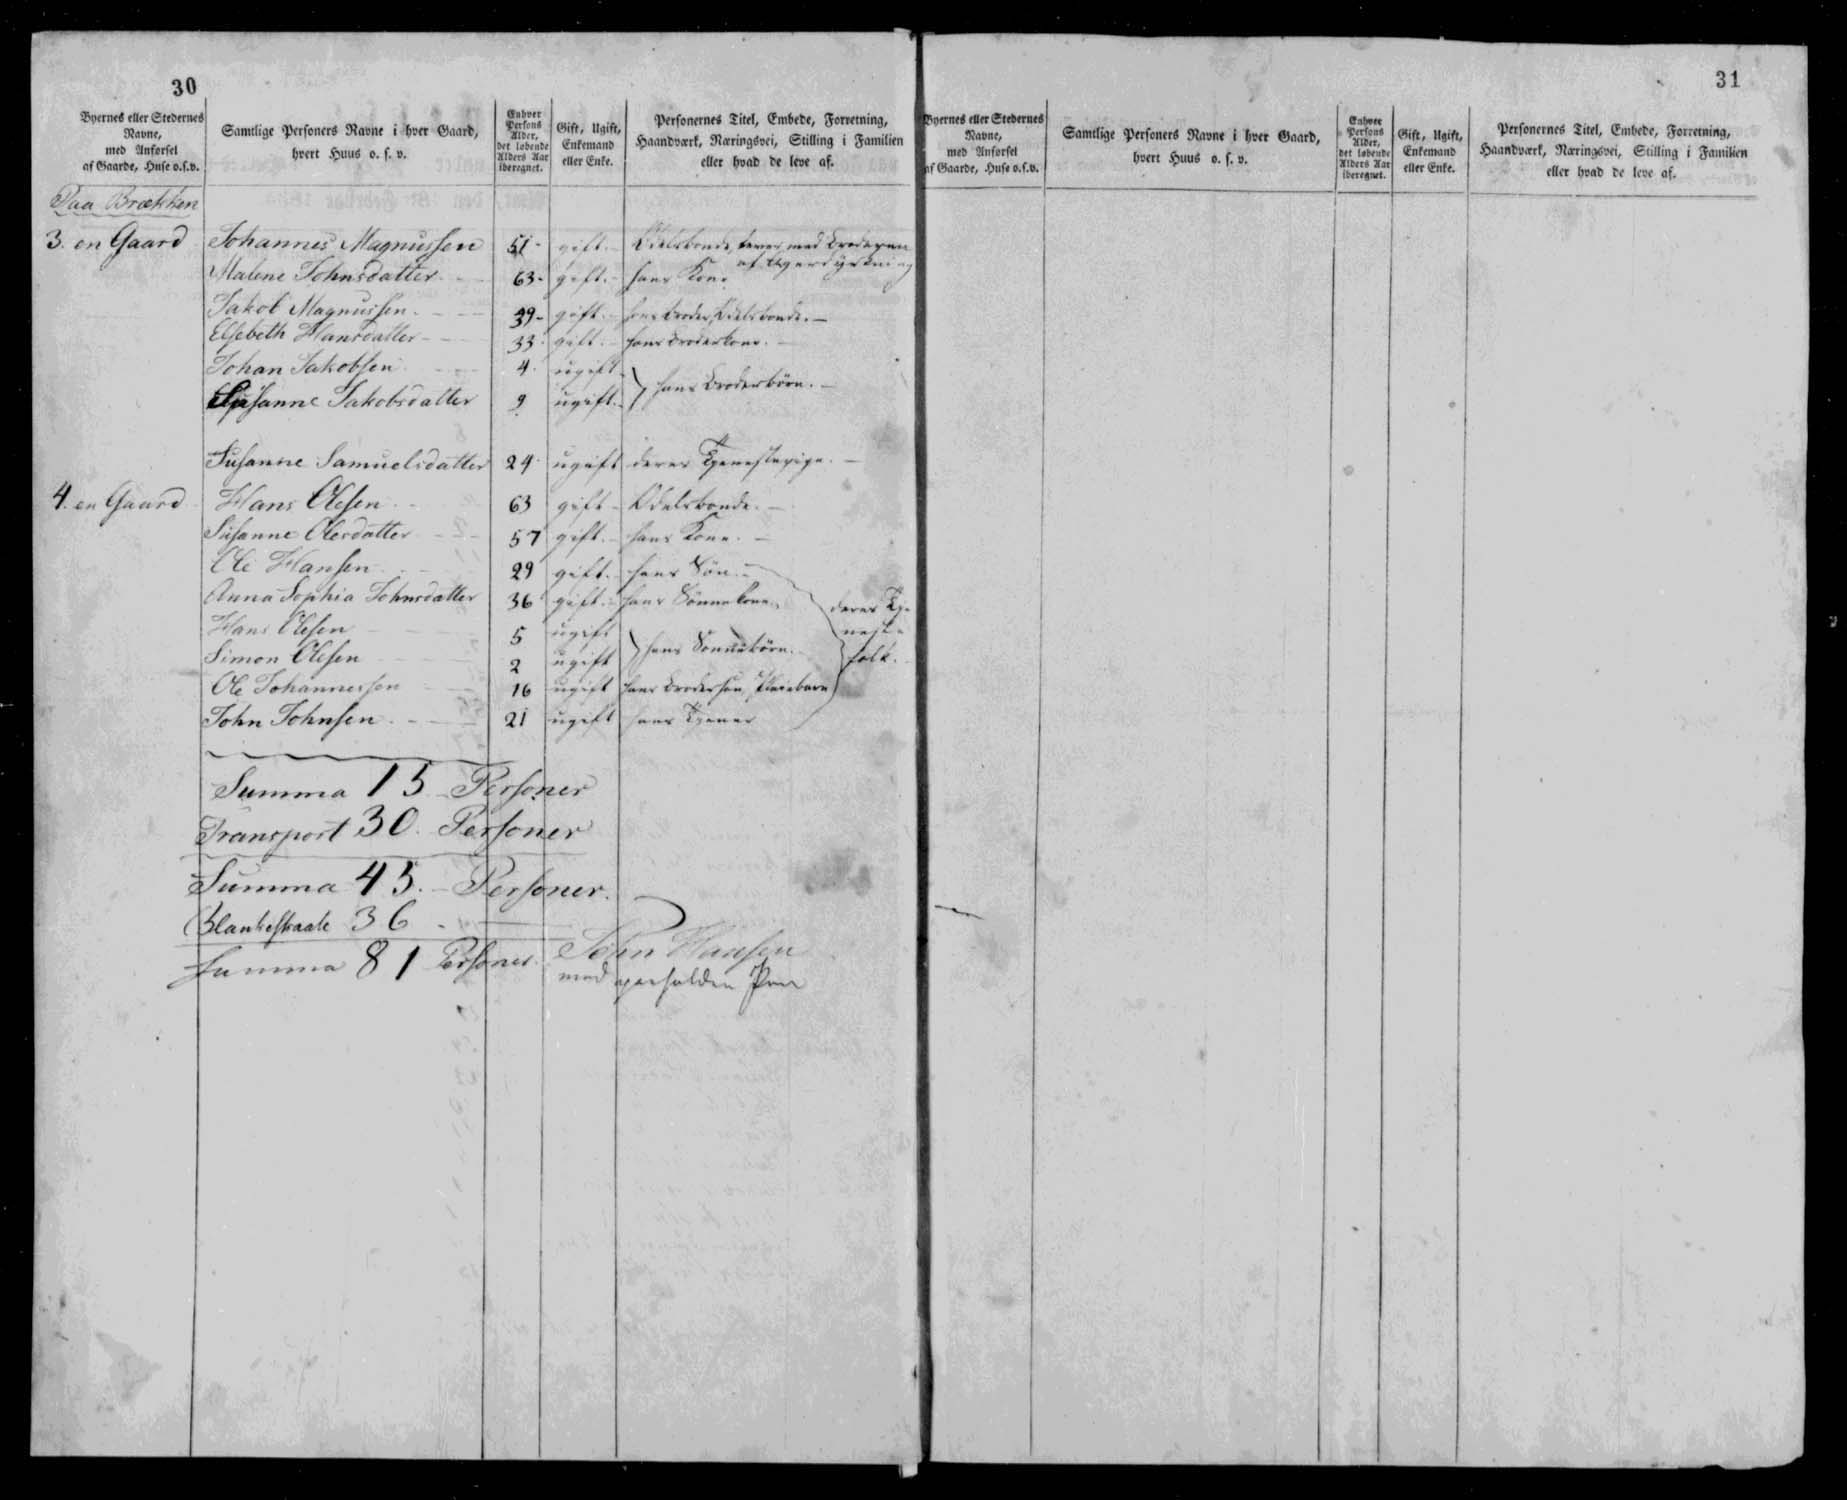 30
Byernes eller Stedernes Navne, med Anførsel af Gaarde, Huse o.s.v.
Samtlige Personers Navne i hver Gaard, hvert Huus o. s. v.
Enhver Persons Alder, det løbende Alders Aar iberegnet.
Gift, Ugift, Enkemand eller Enke.
Personernes Titel, Embede, Forretning, Haandværk, Næringsvei, Stilling i Familien eller hvad de leve af.
Paa Brækken
3. en Gaard Johannes Magnussen 51 gift Odelsbonde, lever med Broderen af Agerdyrkning
Malene Johnsdatter 63 gift hans Kone
Jakob Magnussen 39 gift hans Broder, Odelsbonde
Elsebeth Hansdatter 33 gift hans Broderkone
Johan Jakobsen 4 ugift
Susanne Jakobsdatter 9 ugift } hans Broderbörn
Susanne Samuelsdatter 24 ugift deres Tjenestepige
4. en Gaard Hans Olesen 63 gift Odelsbonde
Susanne Olesdatter 57 gift hans Kone
Ole Hansen 29 gift hans Sön
Anna Sophia Johnsdatter 36 gift hans Sönnekone
Hans Olesen 5 ugift
Simon Olesen 2 ugift } hans Sonnebörn
Ole Johannessen 16 ugift hans Brodersön, Pleiebarn
John Johnsen 21 ugift hans Tjener
} deres Tjenestefolk.
Summa 15 Personer
Transport 30. Personer
Summa 45. Personer.
36
Summa 81 Personer.
John Hansen
med Pen
31
Byernes eller Stedernes Navne, med Anførsel af Gaarde, Huse o.s.v.
Samtlige Personers Navne i hver Gaard, hvert Huus o. s. v.
Enhver Persons Alder, det løbende Alders Aar iberegnet.
Gift, Ugift, Enkemand eller Enke.
Personernes Titel, Embede, Forretning, Haandværk, Næringsvei, Stilling i Familien eller hvad de leve af.